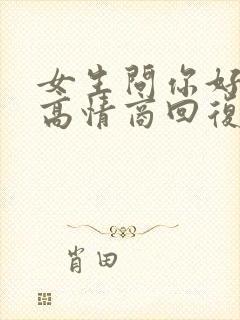 女生問你好
高情商回復
肖田